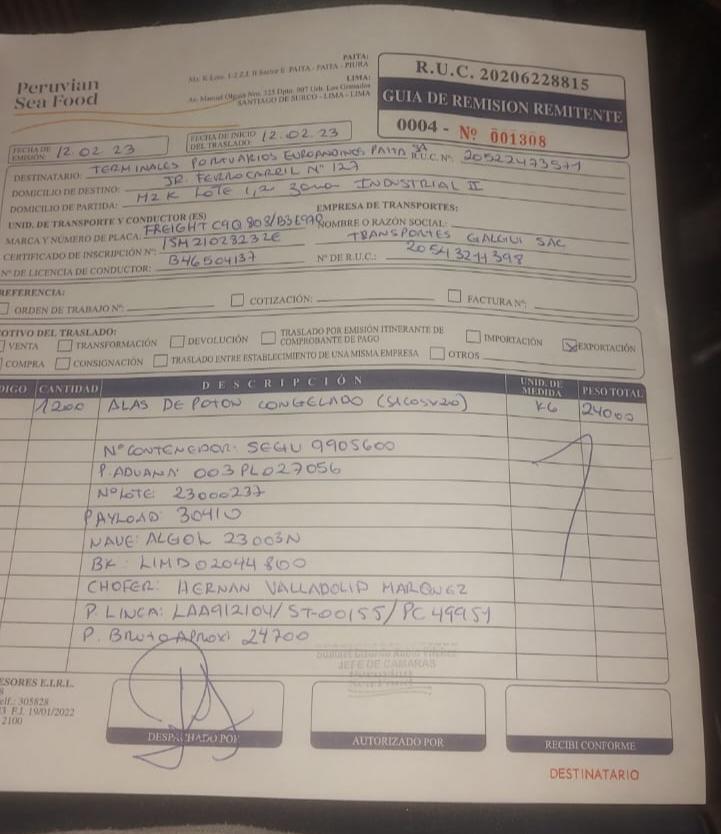 PAITA:
Mz. K Lote. 1-2 Z.I. II Sector E PAITA - PAITA - PIURA
LIMA:
Av. Manuel Olguin Nro. 325 Dpto. 907 Urb. Los Granados
SANTIAGO DE SURCO - LIMA - LIMA
Peruvian
Sea Food
R.U.C. 20206228815
GUIA DE REMISION REMITENTE
0004 - Nº 001308
FECHA DE EMISIÓN 12.02.23 FECHA DE INICIO DEL TRASLADO: 12.02.23
DESTINATARIO: TERMINALES PORTUARIOS EUROANDINOS PAITA SA R.U.C. Nº: 20522473571
DOMICILIO DE DESTINO: JR. FERROCARRIL Nº 127
DOMICILIO DE PARTIDA: MZ K LOTE 1,2 ZONA INDUSTRIAL II
UNID. DE TRANSPORTE Y CONDUCTOR (ES) EMPRESA DE TRANSPORTES:
MARCA Y NÚMERO DE PLACA: FREIGHT C9Q 808/B3E970 NOMBRE O RAZÓN SOCIAL: TRANSPORTES GALGUI SAC
CERTIFICADO DE INSCRIPCIÓN Nº: 15M21023232E
Nº DE LICENCIA DE CONDUCTOR: B46504137 Nº DE R.U.C.: 20543211398
REFERENCIA:
ORDEN DE TRABAJO Nº: COTIZACIÓN: FACTURA Nº:
MOTIVO DEL TRASLADO:
VENTA TRANSFORMACIÓN DEVOLUCIÓN TRASLADO POR EMISIÓN ITINERANTE DE COMPROBANTE DE PAGO IMPORTACIÓN EXPORTACIÓN
COMPRA CONSIGNACIÓN TRASLADO ENTRE ESTABLECIMIENTO DE UNA MISMA EMPRESA OTROS
DIGO CANTIDAD DESCRIPCIÓN UNID. DE MEDIDA PESO TOTAL
1200 ALAS DE POTON CONGELADO (SACOSX20) KG 24000
Nº CONTENEDOR: SEGU 9905600
P. ADUANA: 003PL027056
Nº LOTE: 23000237
PAYLOAD: 30410
NAVE: ALGOL 23003N
BK: LIMD02044800
CHOFER: HERNAN VALLADOLID MARQUEZ
P. LINEA: LAA912104/ST-00155/PC 49951
P. Bruto Aproxi 24700
JEFE DE CAMARAS
Peruvian
Sea Food
ESORES E.I.R.L.
elf.: 305828
F.I. 19/01/2022
2100
DESPACHADO POR
AUTORIZADO POR
RECIBI CONFORME
DESTINATARIO